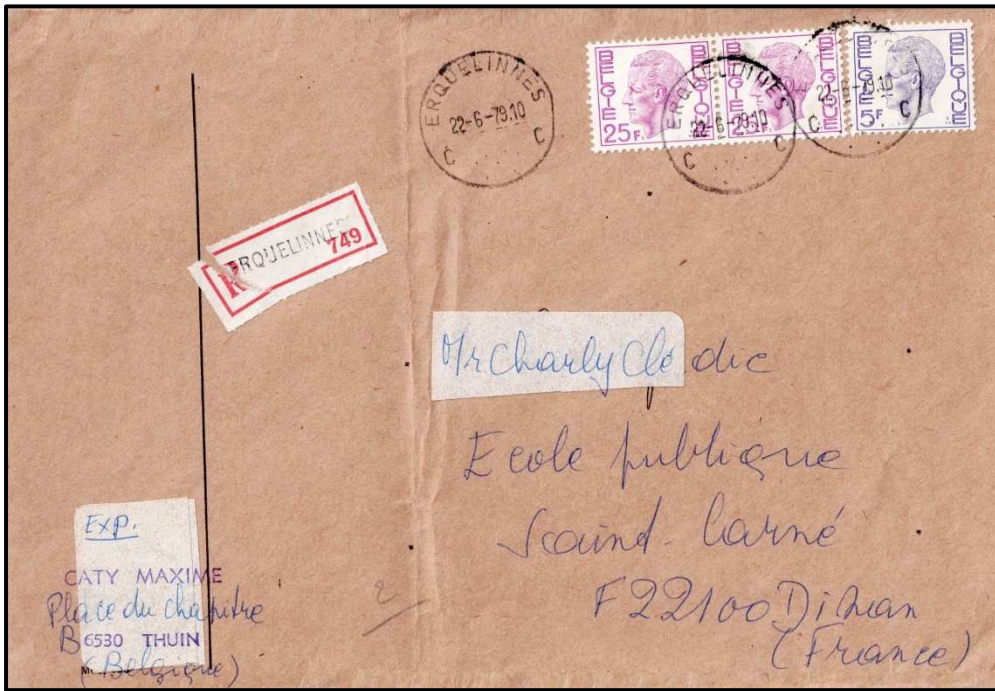 ERQUELINNES
22-6-79.10
C C
BELGIE BELGIQUE
25F
BELGIE BELGIQUE
25F
ERQUELINNES
22-6-79.10
C C
BELGIE BELGIQUE
5F
22-6-79.10
C
R ERQUELINNES
749
Mr Charly Clodic
Ecole publique
Saint-Carné
F22100 Dinan
(France)
Exp.
CATY MAXIME
Place du Chapitre
B 6530 THUIN
(Belgique)
2